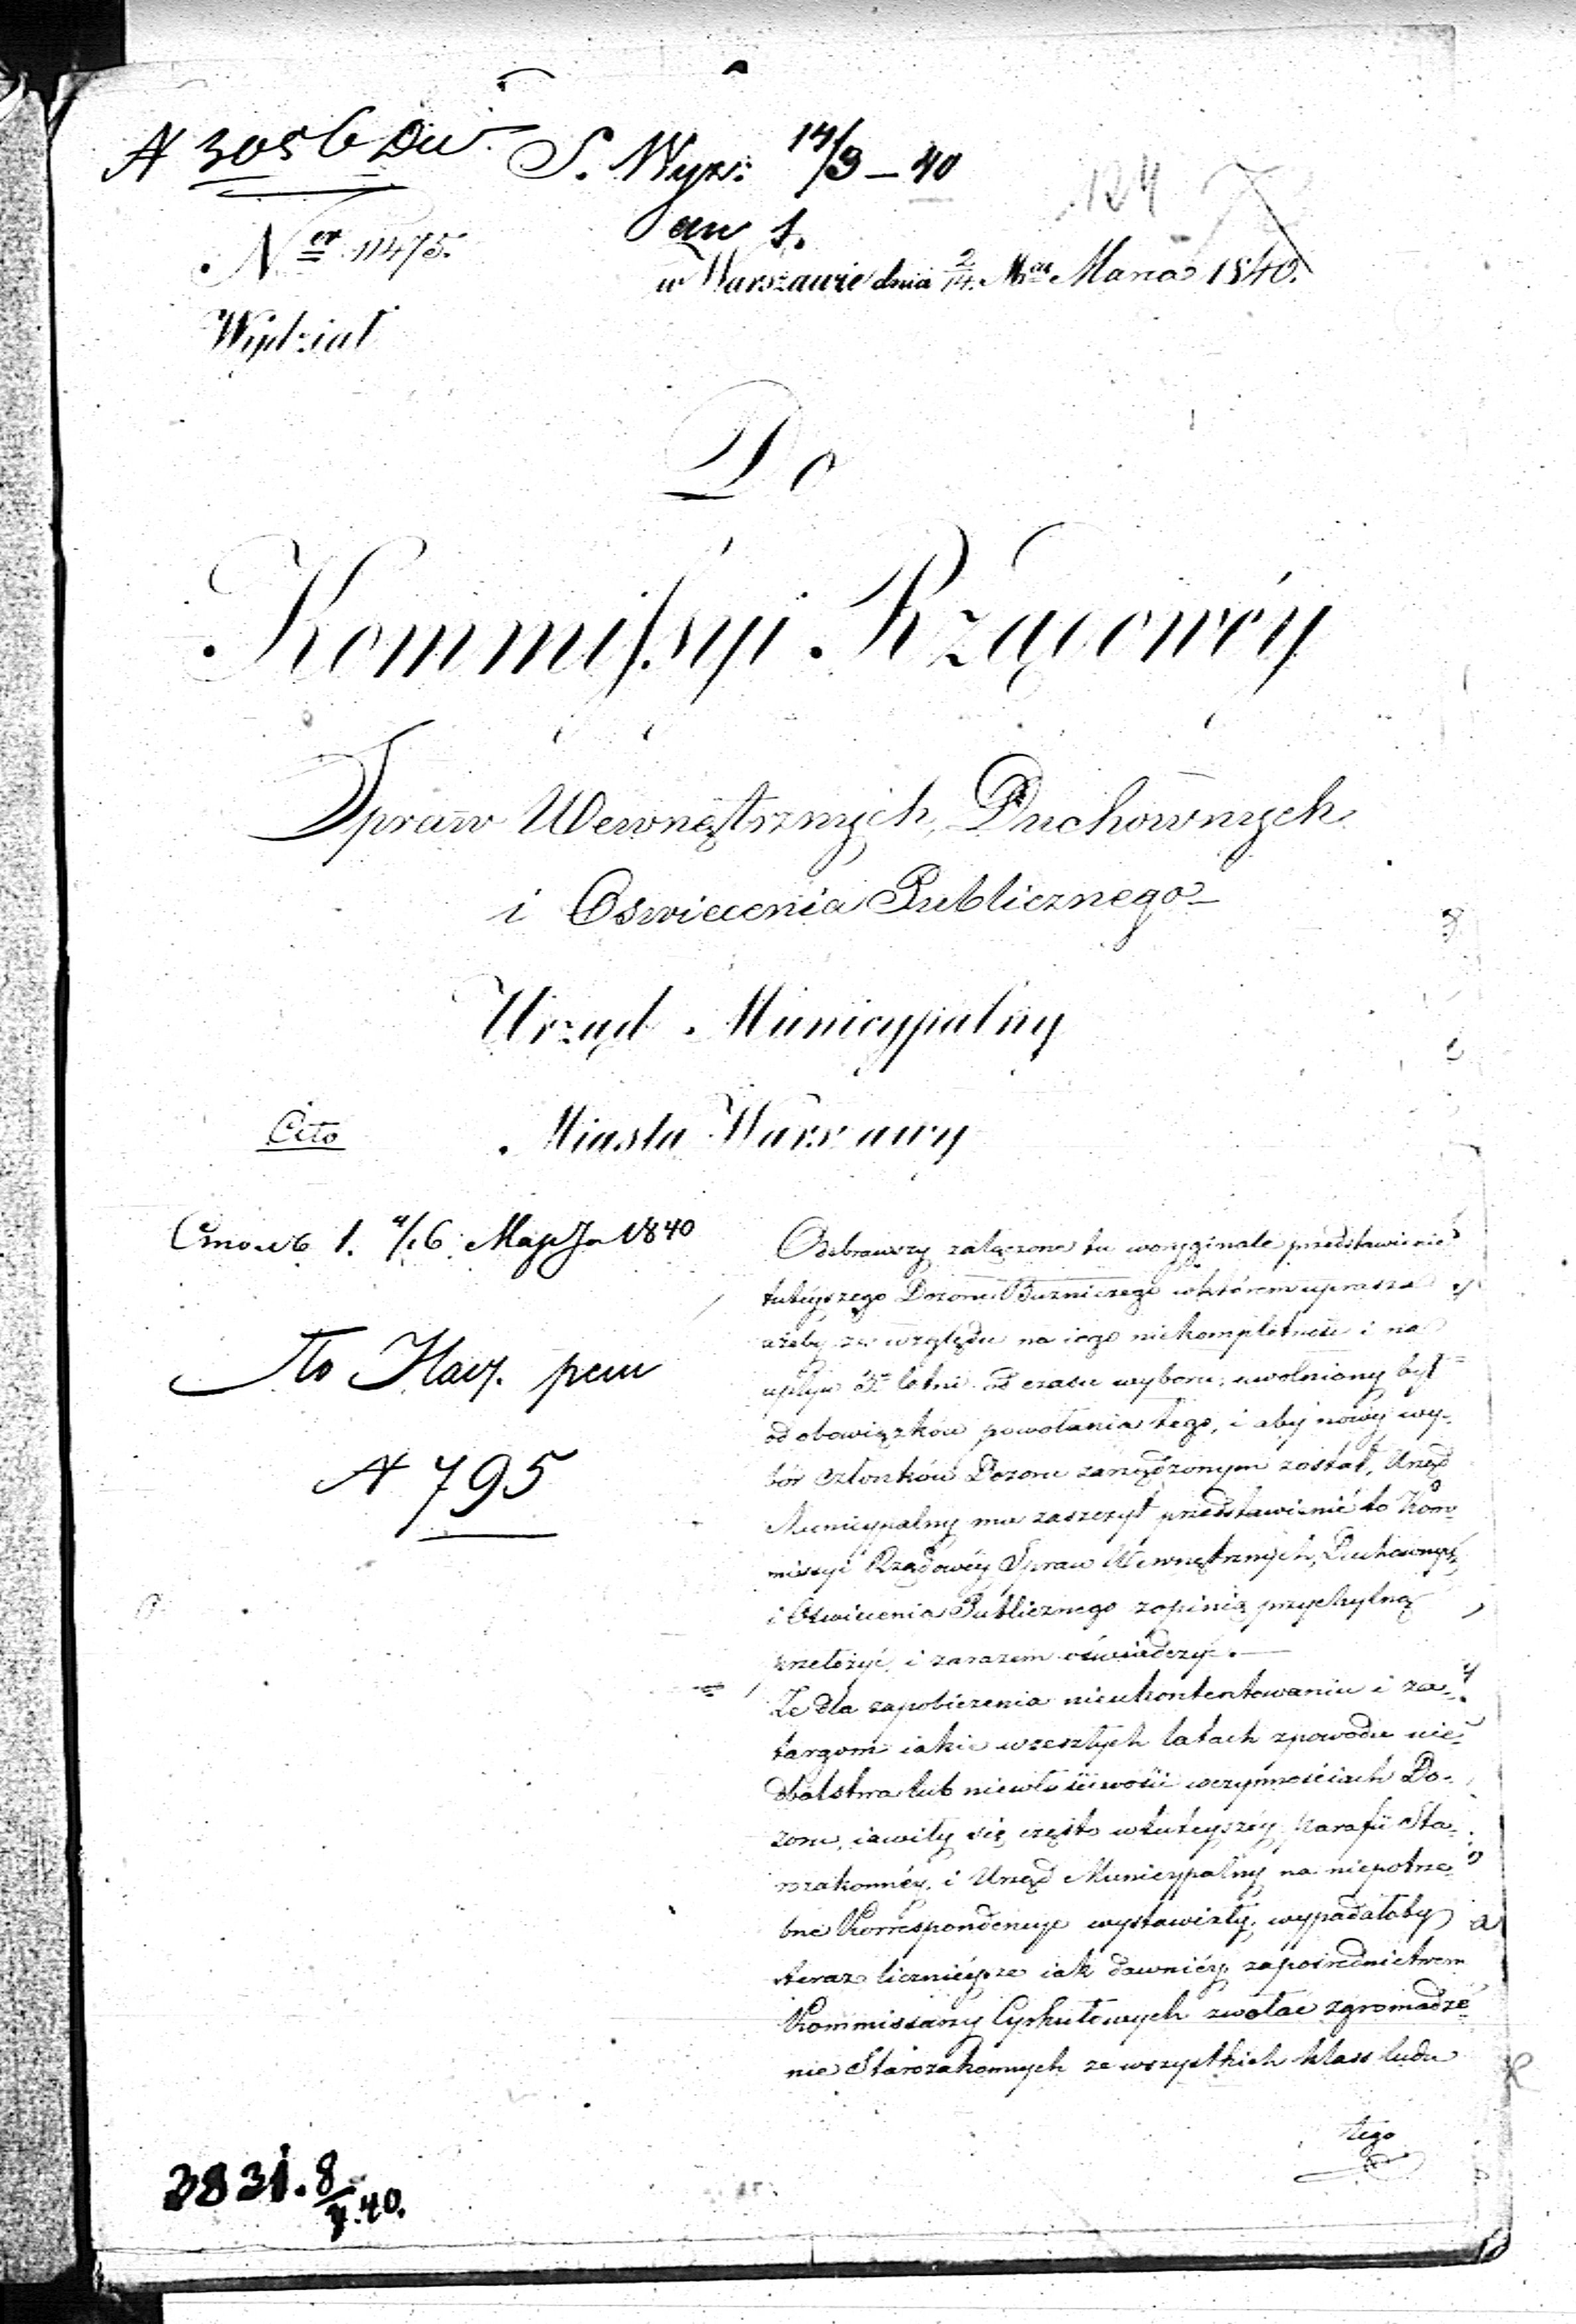 N 3056 Du.
S. Wyzn: 14/3 – 40
an 1.
124
Ner 11475.
w Warszawie dnia 2/14 Mca Marca 1840.
Wydział
Do
Kommissyi Rządowéy
Spraw Wewnętrznych, Duchownych
i Oswiecenia Publicznego
Urząd Municypalny
Cito
Miasta Warszawy
1. 4/16 Марта 1840
Odebrawszy załączone tu woryginale przedstawienie
tuteyszego Dozoru Bużniczego wktórem uprasza
ażeby ze względu na iego niekompletność i na
upływ 3ch letni od czasu wyboru, uwolniony był
od obowiązków powołania tego, i aby nowy wy-
bór Członków Dozoru zarządzonym został, Urząd
Municypalny ma zaszczyt przedstawienie to Kom-
missyi Rządowéy Spraw Wewnętrznych, Duchownych
i Oswiecenia Publicznego zopinią przychylną
przełożyć, i zarazem oświadczyć.
Ze dla zapobieżenia nieukontentowaniu i za-
targom iakie wzeszłych latach zpowodu nie-
dbalstwa lub niewłaściwości wczynnościach Do-
zoru, iawiły się często wtuteyszéy Parafii Sta-
rozakonnéy, i Urząd Municypalny na niepotrze-
bne Korrespondencye wystawiały, wypadałoby
teraz licznieysze iak dawniéy, zapośrednictwem
Kommissarzy Cyrkułowych zwołać zgromadze-
nie Starozakonnych ze wszystkich klass ludu
tego
По
N 795
3831. 8/7.40.